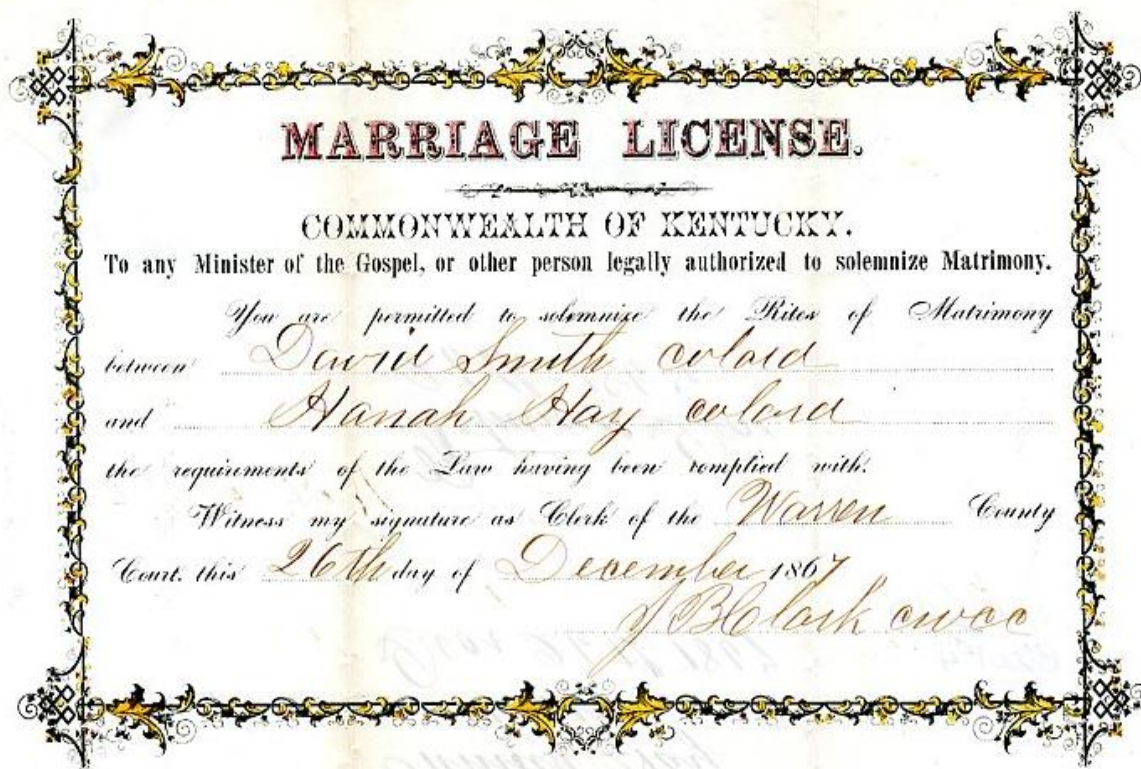 MARRIAGE LICENSE.
COMMONWEALTH OF KENTUCKY.
To any Minister of the Gospel, or other person legally authorized to solemnize Matrimony.
You are permitted to solemnize the Rites of Matrimony
between David Smith colord
and Hanah Hay colord
the requirements of the Law having been complied with.
Witness my signature as Clerk of the Warren County
Court, this 26th day of December 1867
J B Clark cwcc